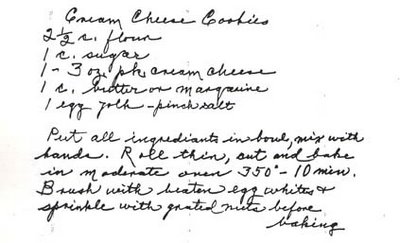 Cream Cheese Cookies
2½ c. flour
1 c. sugar
1 - 3 oz. pk. cream cheese
1 c. butter or margarine
1 egg yolk - pinch salt
Put all ingrediants in bowl, mix with
hands. Roll thin, cut and bake
in moderate oven 350° - 10 min.
Brush with beaten egg whites &
sprinkle with grated nuts before
baking